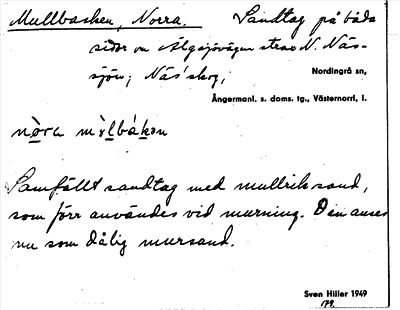 Mullbacken, Norra. Sandtag på båda
sidor om Älgsjövägen strax N. Näs-
sjön; Näs' skog,
Nordingrå sn,
Ångermanl. s. doms. tg., Västernorrl. l.
nòra mùlbákan
Samfällt sandtag med mullrik sand,
som förr användes vid murning. Den anses
nu som dålig mursand.
Sven Hiller 1949